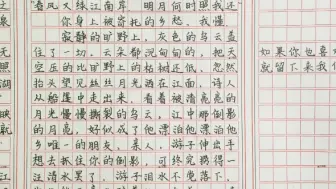 春风又绿江南岸 明月何时照我还
你身上被寄托的乡愁，我懂
寂静的旷野上，灰色的乌云盖
住了一切。云朵都沉甸甸的，把天
空压的比旷野上的枯树还低。忽然
抬头望见丝丝月光洒在江面，诗人
从船篷中走出来，看着被清亮亮的
月光慢慢撕裂的乌云，江中那倒影
的月亮，好似成了他漂泊他漂泊他
乡唯一的朋友，亲人，游子伸出手
想去抓住你的倒影，可终究捞得一
汪清水罢了。游子泪水不免落下，
之
泉
无
照
湖
映
就
的
一
如果你也喜
就留下来我